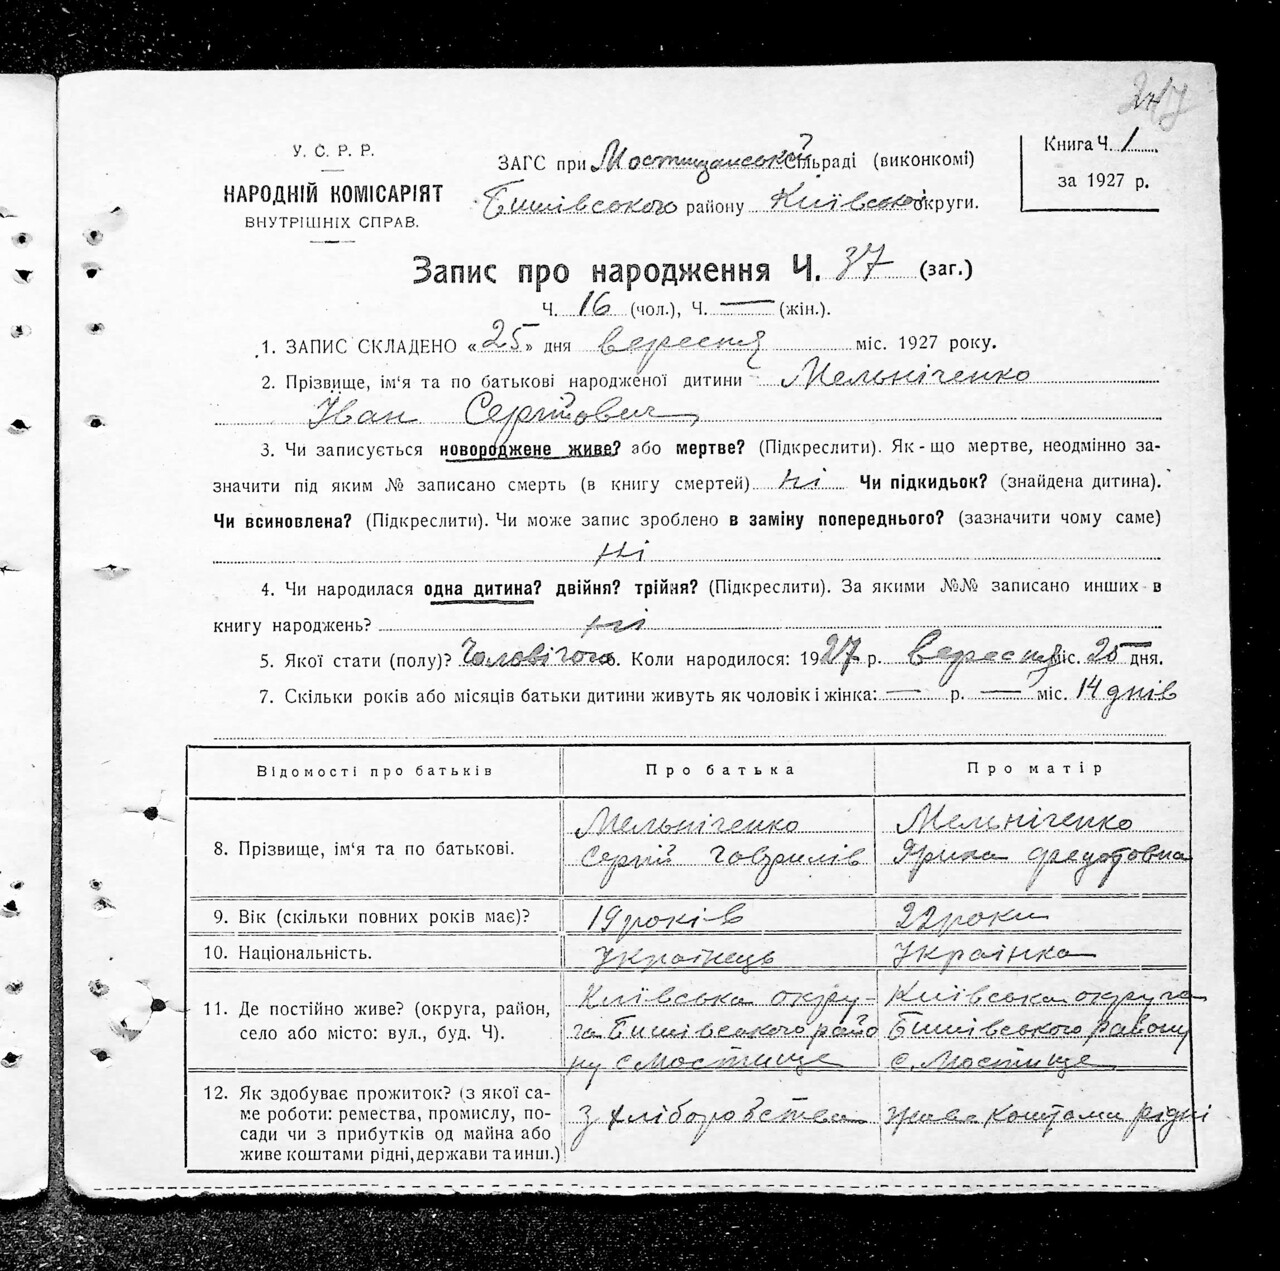 247
У. С. Р. Р.
НАРОДНІЙ КОМІСАРІЯТ
ВНУТРІШНІХ СПРАВ.
ЗАГС при Мостищанській сільраді (виконкомі)
Бишівського району Київської округи.
Книга Ч. 1
за 1927 р.
Запис про народження Ч. 37 (заг.)
Ч. 16 (чол.), Ч. — (жін.).
1. ЗАПИС СКЛАДЕНО «25» дня вересня міс. 1927 року.
2. Прізвище, ім'я та по батькові народженої дитини Мельніченко
Іван Сергійович
3. Чи записується новороджене живе? або мертве? (Підкреслити). Як-що мертве, неодмінно за-
значити під яким № записано смерть (в книгу смертей) ні Чи підкидьок? (знайдена дитина).
Чи всиновлена? (Підкреслити). Чи може запис зроблено в заміну попереднього? (зазначити чому саме)
ні
4. Чи народилася одна дитина? двійня? трійня? (Підкреслити). За якими №№ записано инших в
книгу народжень? ні
5. Якої стати (полу)? Чоловічого 6. Коли народилося: 1927 р. вересня міс. 25 дня.
7. Скільки років або місяців батьки дитини живуть як чоловік і жінка: — р. — міс. 14 днів
Відомості про батьків Про батька Про матір
8. Прізвище, ім'я та по батькові.
Мельніченко
Сергій Гаврилів
Мельніченко
Ярина Федотовна
9. Вік (скільки повних років має)? 19 років 22 роки
10. Національність. Українець Українка
11. Де постійно живе? (округа, район,
село або місто: вул., буд. Ч).
Київська окру-
га Бишівського райо
ну с Мостище
Київська округа
Бишівського району
с. Мостище
12. Як здобуває прожиток? (з якої са-
ме роботи: ремества, промислу, по-
сади чи з прибутків од майна або
живе коштами рідні, держави та инш.)
З хліборобства
живе коштами рідні